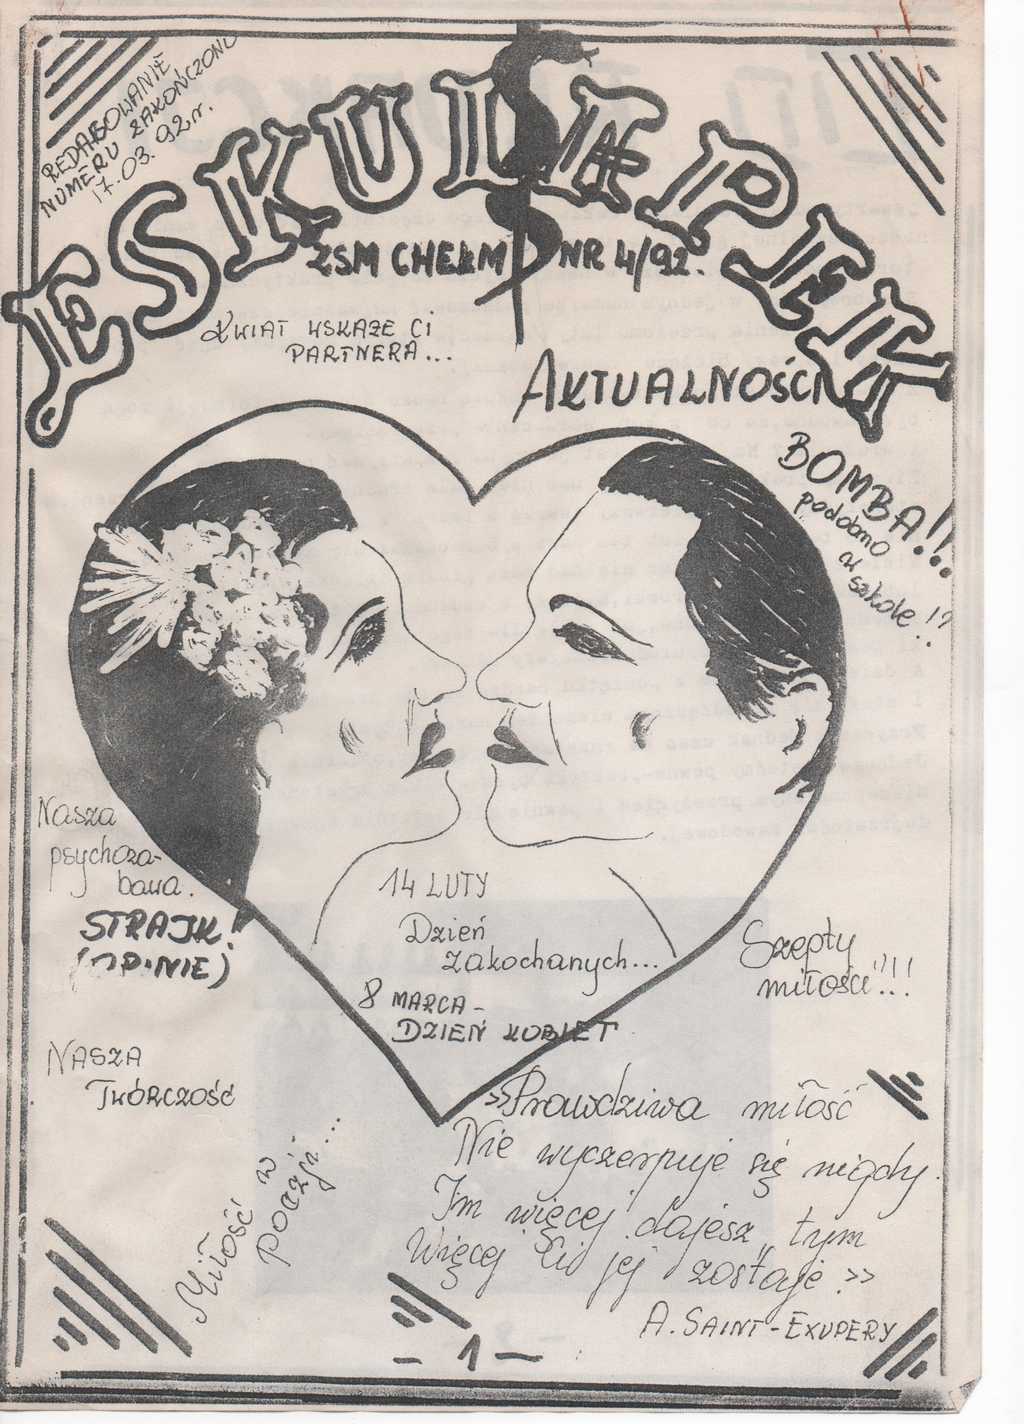 REDAGOWANIE
NUMERU ZAKOŃCZONO
17.03.92r.
ESKULAPEK
ZSM CHEŁM NR 4/92.
KWIAT WSKAŻE CI
PARTNERA...
AKTUALNOŚCI
BOMBA!!!
podobno
w
szkole!?
Nasza
psychoza-
bawa.
STRAJK!
(OPINIE)
14 LUTY
Dzień
zakochanych...
8 MARCA-
DZIEŃ KOBIET
Szepty
miłości!!!
NASZA
TWÓRCZOŚĆ
Miłość w
poezji...
»Prawdziwa miłość
Nie wyczerpuje się nigdy.
Im więcej dajesz tym
Więcej Ci jej zostaje.»
A. SAINT-EXUPERY
- 1 -